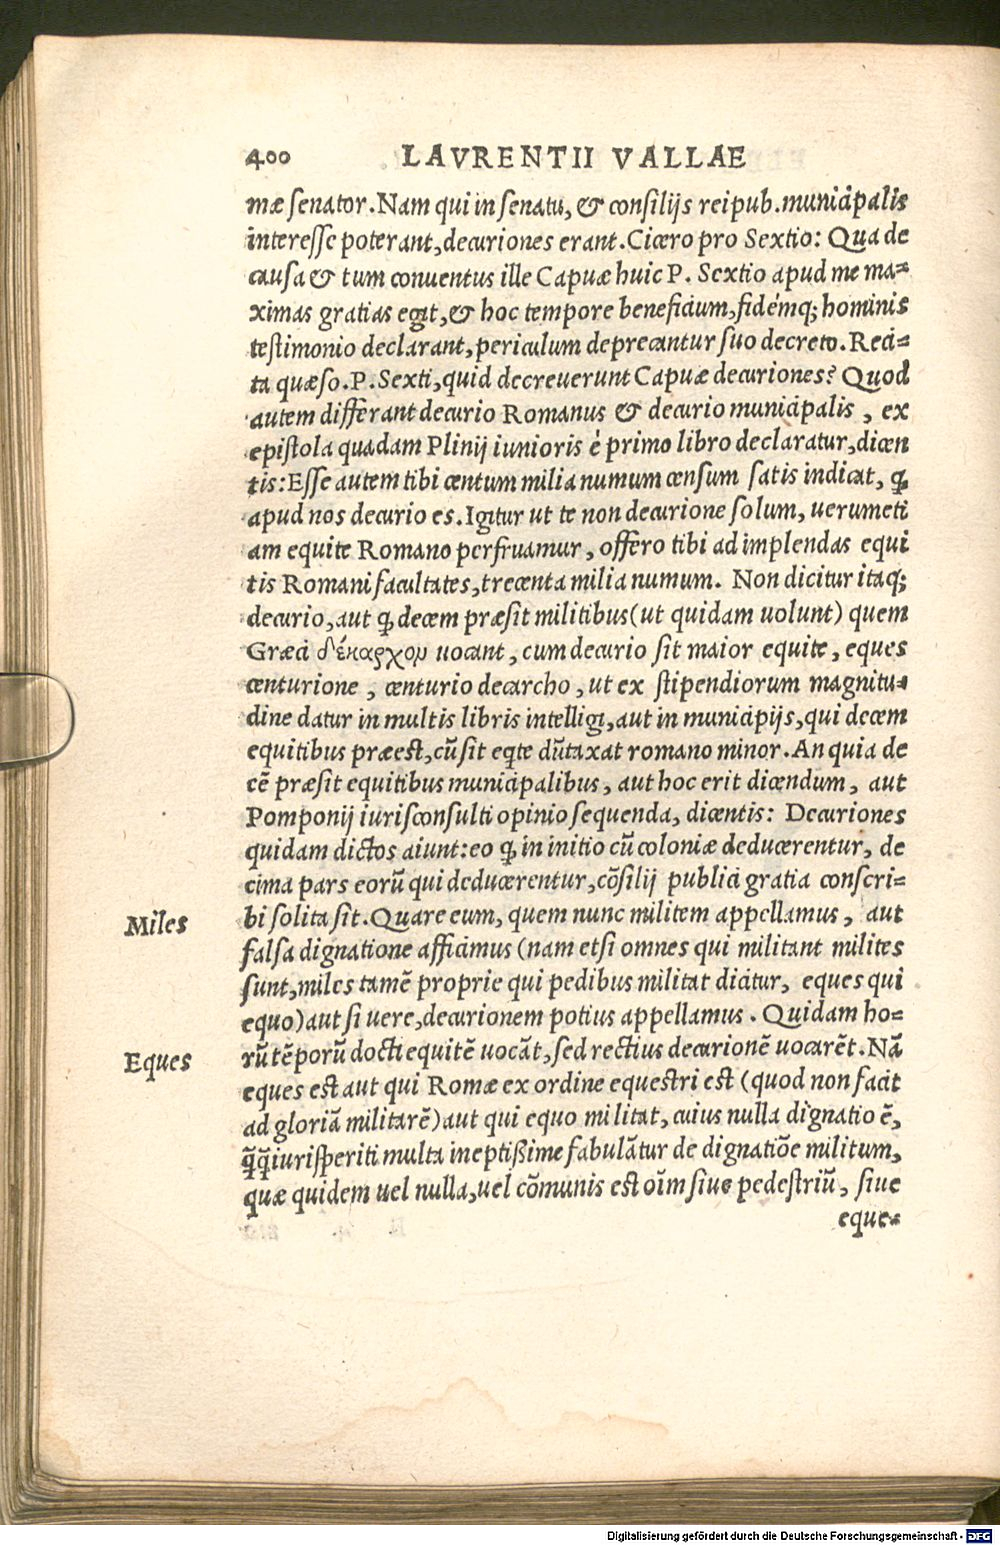 400 LAVRENTII VALLAE
mæ senator. Nam qui in senatu, & consilijs reipub. municipalis
interesse poterant, decuriones erant. Cicero pro Sextio: Qua de
causa & tum conuentus ille Capuæ huic P. Sextio apud me ma-
ximas gratias egit, & hoc tempore beneficium, fidémq; hominis
testimonio declarant, periculum deprecantur suo decreto. Reci-
ta quæso. P. Sexti, quid decreuerunt Capuæ decuriones? Quod
autem differant decurio Romanus & decurio municipalis, ex
epistola quadam Plinij iunioris è primo libro declaratur, dicen
tis: Esse autem tibi centum milia numum censum satis indicat, ꝙ
apud nos decurio es. Igitur ut te non decurione solum, uerumeti
am equite Romano perfruamur, offero tibi ad implendas equi
tis Romani facultates, trecenta milia numum. Non dicitur itaq;
decurio, aut ꝙ decem præsit militibus (ut quidam uolunt) quem
Græci δέκαρχον uocant, cum decurio sit maior equite, eques
centurione, centurio decarcho, ut ex stipendiorum magnitu-
dine datur in multis libris intelligi, aut in municipijs, qui decem
equitibus præest, cũ sit eq̃te dũtaxat romano minor. An quia de
cẽ præsit equitibus municipalibus, aut hoc erit dicendum, aut
Pomponij iurisconsulti opinio sequenda, dicentis: Decuriones
quidam dictos aiunt: eo ꝙ in initio cũ coloniæ deducerentur, de
cima pars eorũ qui deducerentur, cõsilij publici gratia conscri-
Miles
bi solita sit. Quare eum, quem nunc militem appellamus, aut
falsa dignatione afficimus (nam etsi omnes qui militant milites
sunt, miles tamẽ proprie qui pedibus militat dicitur, eques qui
equo) aut si uere, decurionem potius appellamus. Quidam ho-
Eques
rũ tẽporũ docti equitẽ uocãt, sed rectius decurionẽ uocarẽt. Nã
eques est aut qui Romæ ex ordine equestri est (quod non facit
ad gloriã militarẽ) aut qui equo militat, cuius nulla dignatio ẽ,
q̃q̃ iurisperiti multa ineptißime fabulãtur de dignatiõe militum,
quæ quidem uel nulla, uel cõmunis est oĩm siue pedestriũ, siue
eque-
Digitalisierung gefördert durch die Deutsche Forschungsgemeinschaft - DFG